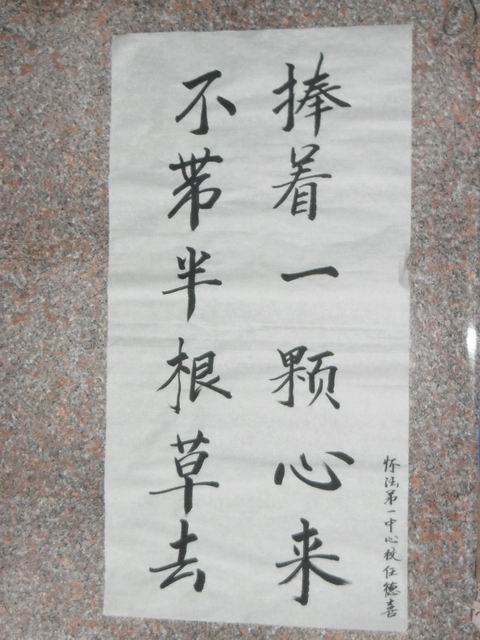 捧着一颗心来
不带半根草去
怀法第一中心校任德喜